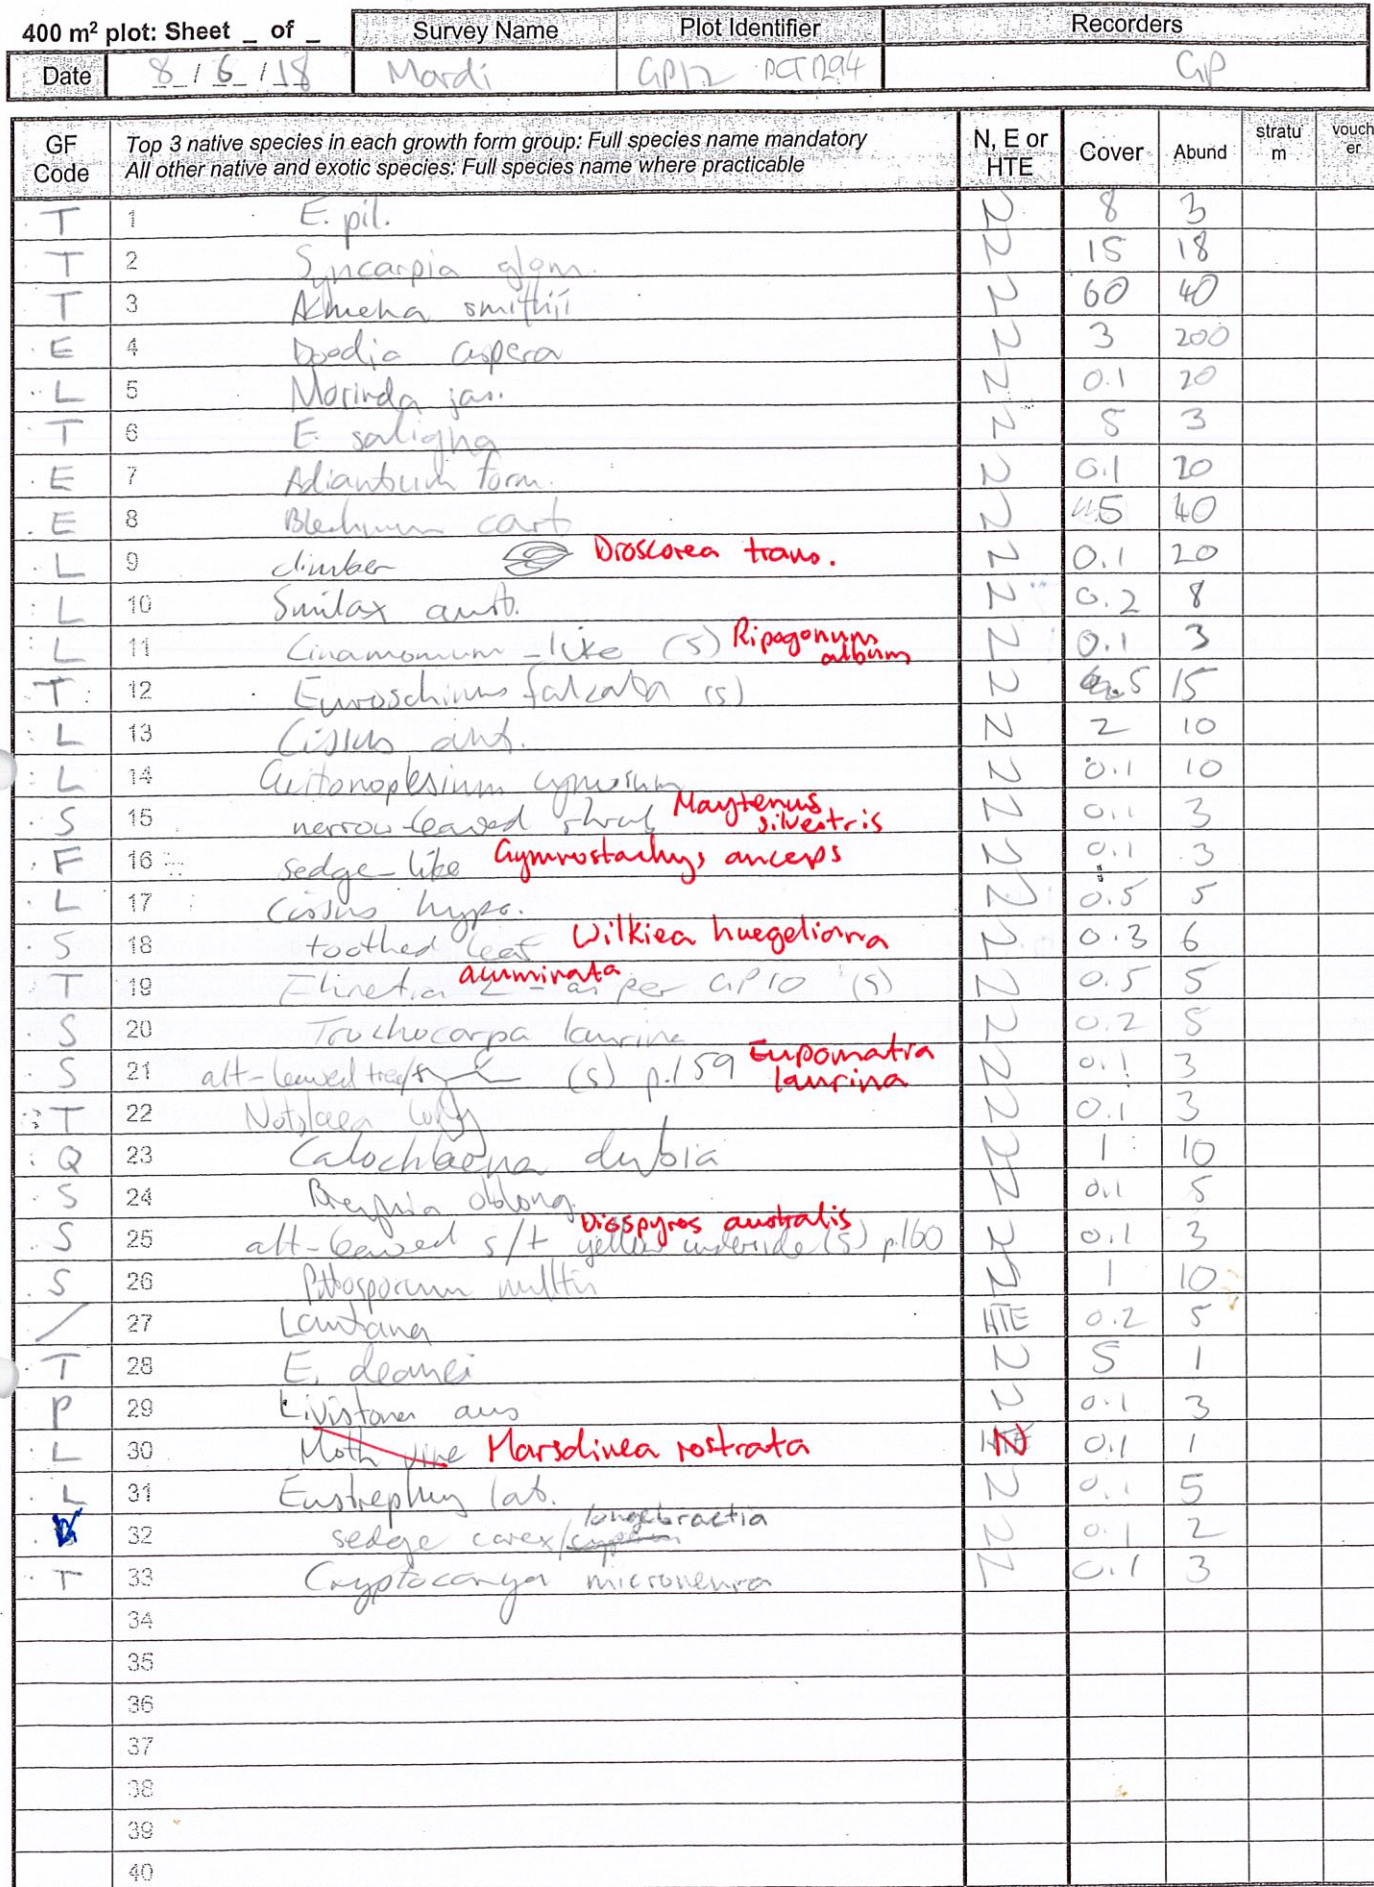 400 m² plot: Sheet _ of _ Survey Name Plot Identifier Recorders
Date 8/6/18 Mardi GP12 PCT1294 GP
GF Code Top 3 native species in each growth form group: Full species name mandatory All other native and exotic species: Full species name where practicable N, E or HTE Cover Abund stratu m vouch er
T 1 E. pil. N 8 3
T 2 Syncarpia glom. N 15 18
T 3 Acmena smithii N 60 40
E 4 Doodia aspera N 3 200
L 5 Morinda jas. N 0.1 20
T 6 E. saligna N 5 3
E 7 Adiantum form. N 0.1 20
E 8 Blechnum cart N 40
L 9 climber Dioscorea trans. N 0.1 20
L 10 Smilax aust. N 0.2 8
L 11 Cinamomum-like (s) Ripogonum album N 0.1 3
T 12 Euroschinus falcata (s) N 15
L 13 Cissus ant. N 2 10
L 14 Geitonoplesium cymosum N 0.1 10
S 15 narrow-leaved shrub Maytenus silvestris N 0.1 3
F 16 sedge-like Gymnostachys anceps N 0.1 3
L 17 Cissus hypo. N 0.5 5
S 18 toothed leaf Wilkiea huegeliana N 0.3 6
T 19 acuminata - as per GP10 (s) N 0.5 5
S 20 Trochocarpa laurina N 0.2 5
S 21 alt-leaved tree/ (s) p.159 Eupomatia laurina N 0.1 3
T 22 Notelaea long N 0.1 3
Q 23 Calochlaena dubia N 1 10
S 24 Breynia oblong. N 0.1 5
S 25 alt-leaved s/t yellow underside (s) p.160 Diospyros australis N 0.1 3
S 26 Pittosporum multi N 1 10
/ 27 Lantana HTE 0.2 5
T 28 E. deanei N 5 1
P 29 Livistona aus N 0.1 3
L 30 Moth vine Marsdinea rostrata N 0.1 1
L 31 Eustrephus lat. N 0.1 5
32 sedge carex/ longebractia N 0.1 2
T 33 Cryptocarya microneura N 0.1 3
34
35
36
37
38
39
40